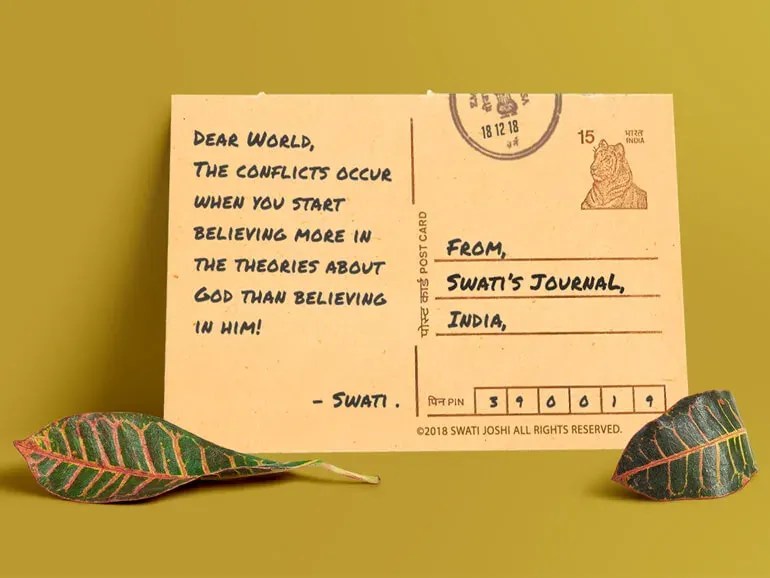 DEAR WORLD,
THE CONFLICTS OCCUR
WHEN YOU START
BELIEVING MORE IN
THE THEORIES ABOUT
GOD THAN BELIEVING
IN HIM!
– SWATI .
18 12 18
15
भारत
INDIA
पोस्ट कार्ड POST CARD
FROM,
SWATI'S JOURNAL,
INDIA,
पिन PIN 3 9 0 0 1 9
©2018 SWATI JOSHI ALL RIGHTS RESERVED.